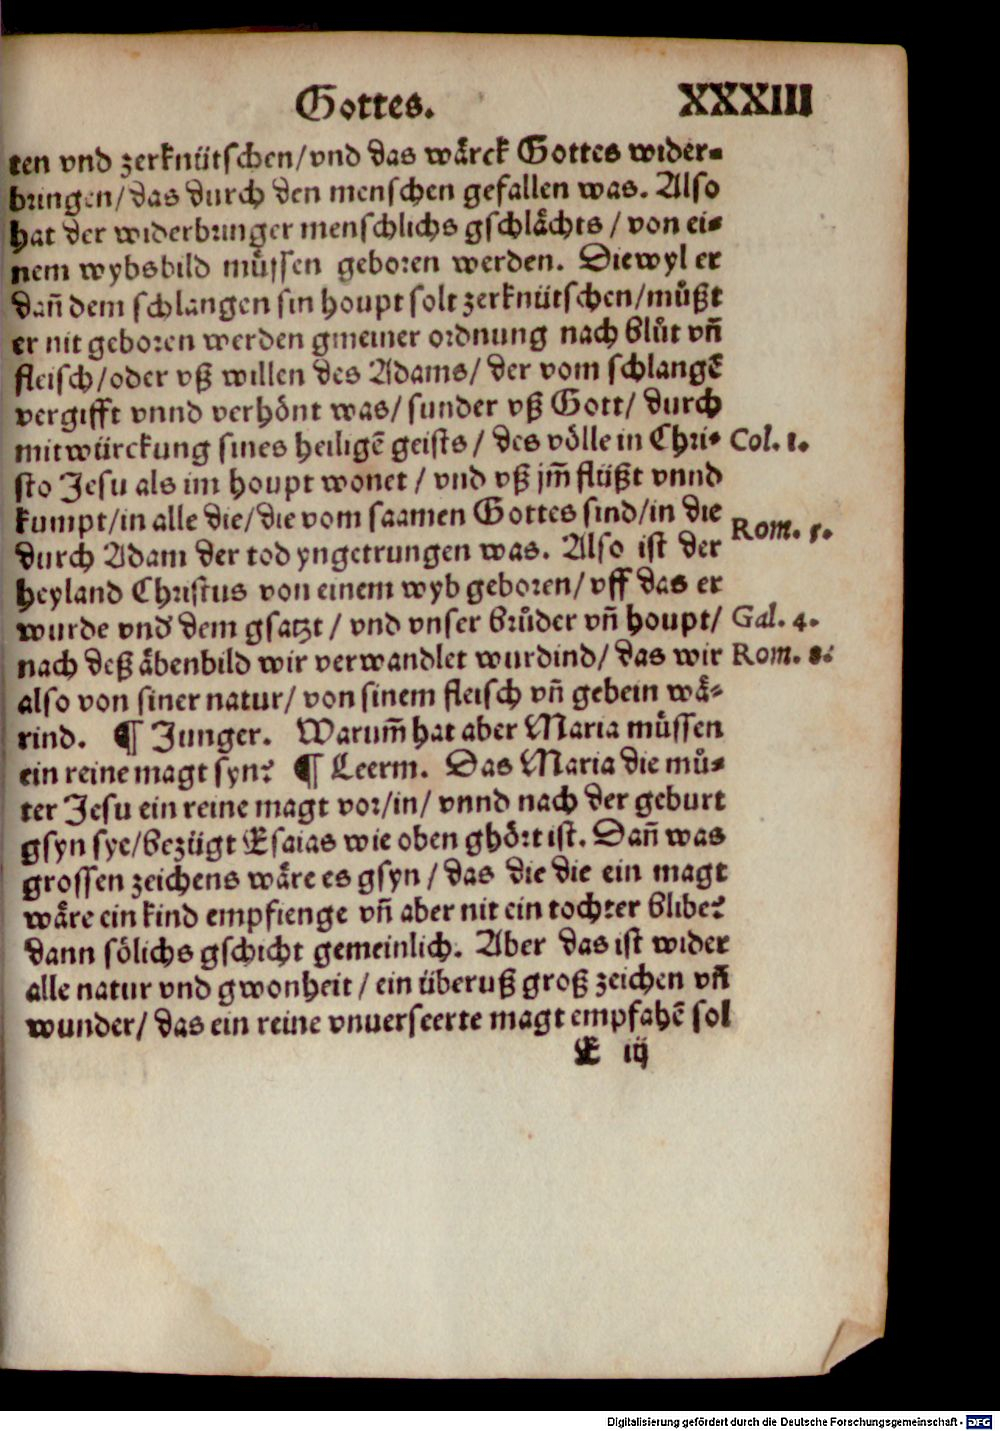 Gottes. XXXIII
ten vnd zerknütschen/vnd das wårck Gottes wider-
bringen/das durch den menschen gefallen was. Also
hat der widerbringer menschlichs gschlåchts / von ei-
nem wybsbild müssen geboren werden. Diewyl er
dañ dem schlangen sin houpt solt zerknütschen/můßt
er nit geboren werden gmeiner ordnung nach blůt vñ
fleisch/oder vß willen des Adams/ der vom schlangē
vergifft vnnd verhönt was/ sunder vß Gott/ durch
mitwürckung sines heiligē geists / des völle in Chri- Col. 1.
sto Jesu als im houpt wonet / vnd vß jm̃ flüßt vnnd
kumpt/in alle die/die vom saamen Gottes sind/in die
durch Adam der tod yngetrungen was. Also ist der Rom. 5.
heyland Christus von einem wyb geboren/ vff das er
wurde vnd̓ dem gsatzt / vnd vnser brůder vñ houpt/ Gal. 4.
nach deß åbenbild wir verwandlet wurdind/ das wir Rom. 8.
also von siner natur/ von sinem fleisch vñ gebein wå-
rind. ¶ Junger. Warum̃ hat aber Maria müssen
ein reine magt syn? ¶ Leerm. Das Maria die mů-
ter Jesu ein reine magt vor/in/ vnnd nach der geburt
gsyn sye/bezügt Esaias wie oben ghört ist. Dañ was
grossen zeichens wåre es gsyn / das die die ein magt
wåre ein kind empfienge vñ aber nit ein tochter blibe?
dann sölichs gschicht gemeinlich. Aber das ist wider
alle natur vnd gwonheit / ein überuß groß zeichen vñ
wunder/ das ein reine vnuerseerte magt empfahē sol
E iij
Digitalisierung gefördert durch die Deutsche Forschungsgemeinschaft - DFG